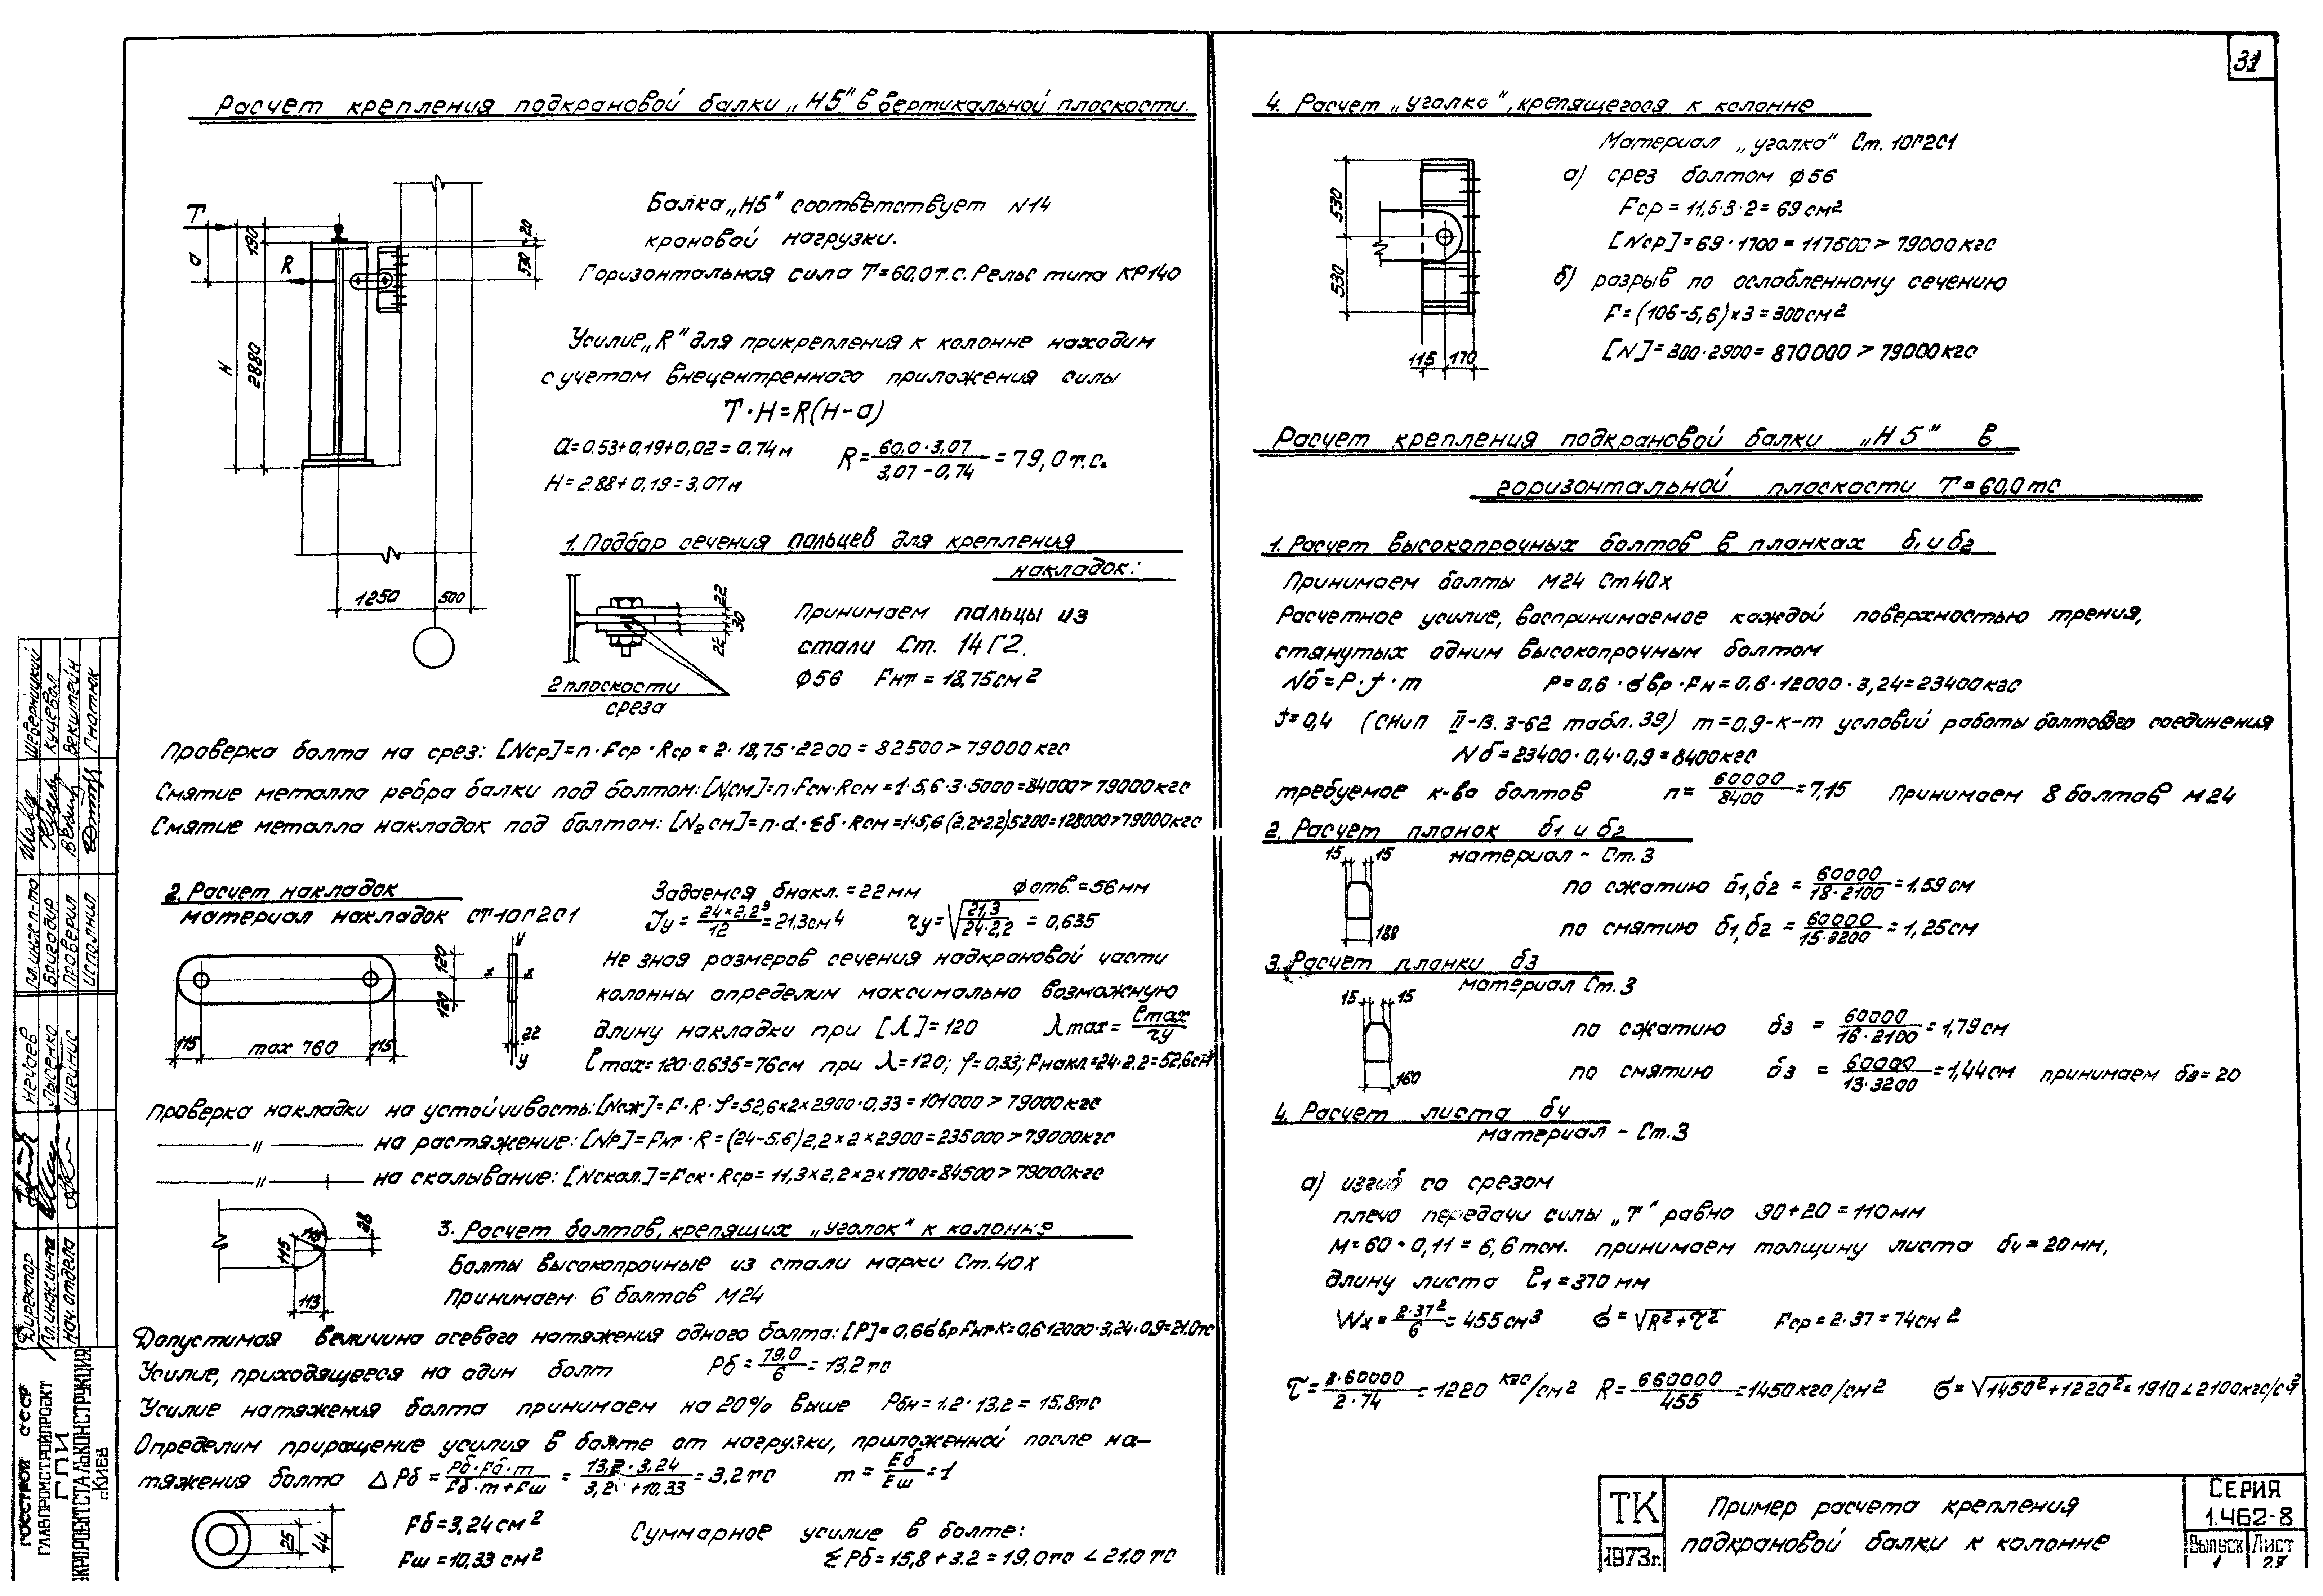 31
Расчет крепления подкрановой балки „Н5" в вертикальной плоскости.
T
R
a
H
190
2880
20
530
1250
500
Балка „Н5" соответствует N14
крановой нагрузки.
Горизонтальная сила Т=60,0т.с. Рельс типа КР140
Усилие „R" для прикрепления к колонне находим
с учетом внецентренного приложения силы
T·H=R(H-a)
a=0.53+0,19+0,02=0,74м R=60,0·3,07/3,07-0,74=79,0т.с.
H=2.88+0,19=3,07м
1. Подбор сечения пальцев для крепления
накладок:
22
30
22
2 плоскости
среза
Принимаем пальцы из
стали Ст. 14Г2.
ф56 Fнт=18,75см2
Проверка болта на срез: [Nср]=n·Fср·Rср=2·18,75·2200=82500>79000кгс
Смятие металла ребра балки под болтом: [N1см]=n·Fсм·Rсм=1·5,6·3·5000=84000>79000кгс
Смятие металла накладок под болтом: [N2см]=n·d·Σδ·Rсм=1·5,6(2,2+2,2)5200=128000>79000кгс
2. Расчет накладок
материал накладок ст10Г2С1
Задаемся δнакл.=22мм ф отв.=56мм
Jy=24×2,2³/12=21,3см4 ry=√21,3/24·2,2=0,635
120
120
115
max 760
115
y
x
x
22
y
Не зная размеров сечения надкрановой части
колонны определим максимально возможную
длину накладки при [λ]=120 λmax=ℓmax/ry
ℓmax=120·0.635=76см при λ=120; φ=0,33; Fнакл=24·2.2=52,6см²
Проверка накладки на устойчивость: [Nсж]=F·R·φ=52,6×2×2900·0,33=101000>79000кгс
—"— на растяжение: [Np]=Fнт·R=(24-5.6)2,2×2×2900=235000>79000кгс
—"— на скалывание: [Nскал.]=Fск·Rср=11,3×2,2×2×1700=84500>79000кгс
115
28
113
3. Расчет болтов, крепящих „уголок" к колонне
Болты высокопрочные из стали марки Ст.40х
Принимаем 6 болтов М24
Допустимая величина осевого натяжения одного болта: [P]=0,6σврFнт·К=0,6·12000·3,24·0,9=21.0тс
Усилие, приходящееся на один болт Рб=79,0/6=13,2тс
Усилие натяжения болта принимаем на 20% выше Рбн=1.2·13,2=15,8тс
Определим приращение усилия в болте от нагрузки, приложенной после на-
тяжения болта ΔРб=Рб·Fб·m/Fб·m+Fш=13,2·3,24/3,2+10,33=3,2тс m=Eб/Eш=1
25
44
Fб=3,24см2
Fш=10,33см2
Суммарное усилие в болте:
ΣРб=15,8+3.2=19,0тс<21.0тс
4. Расчет „уголка", крепящегося к колонне
530
530
115
170
Материал „уголка" Ст. 10Г2С1
а) срез болтом ф56
Fср=11,5·3·2=69см2
[Nср]=69·1700=117500>79000кгс
б) разрыв по ослабленному сечению
F=(106-5,6)×3=300см2
[N]=300·2900=870000>79000кгс
Расчет крепления подкрановой балки „Н5" в
горизонтальной плоскости Т=60,0тс
1. Расчет высокопрочных болтов в планках δ1 и δ2
Принимаем болты М24 Ст40х
Расчетное усилие, воспринимаемое каждой поверхностью трения,
стянутых одним высокопрочным болтом
Nб=P·f·m P=0,6·σвр·Fн=0,6·12000·3,24=23400кгс
f=0,4 (СНиП II-В.3-62 табл.39) m=0,9-к-т условий работы болтового соединения
Nб=23400·0,4·0,9=8400кгс
требуемое к-во болтов n=60000/8400=7,15 Принимаем 8 болтов М24
2. Расчет планок δ1 и δ2
материал - Ст.3
15
15
180
по сжатию δ1,δ2=60000/18·2100=1,59см
по смятию δ1,δ2=60000/15·3200=1,25см
3. Расчет планки δ3
материал Ст.3
15
15
160
по сжатию δ3=60000/16·2100=1,79см
по смятию δ3=60000/13·3200=1,44см принимаем δ3=20
4. Расчет листа δ4
материал - Ст.3
а) изгиб со срезом
плечо передачи силы „Т" равно 90+20=110мм
М=60·0,11=6,6тсм. принимаем толщину листа δ4=20мм,
длину листа ℓ1=370мм
Wx=2·37²/6=455см3 σ=√R²+τ² Fср=2·37=74см2
τ=3·60000/2·74=1220кгс/см2 R=660000/455=1450кгс/см2 σ=√1450²+1220²=1910<2100кгс/см²
ТК
1973г.
Пример расчета крепления
подкрановой балки к колонне
Серия
1.462-8
Выпуск
1
Лист
Гл.инж.п-та
Бригадир
Проверил
Исполнил
Шеверницкий
Кучевол
Векштейн
Гнатюк
Директор
Гл.инж.ин-та
Нач.отдела
Нечаев
Лысенко
Шейнис
ГОССТРОЙ СССР
ГЛАВПРОМСТРОЙПРОЕКТ
ГПИ
УКРПРОЕКТСТАЛЬКОНСТРУКЦИЯ
г.Киев